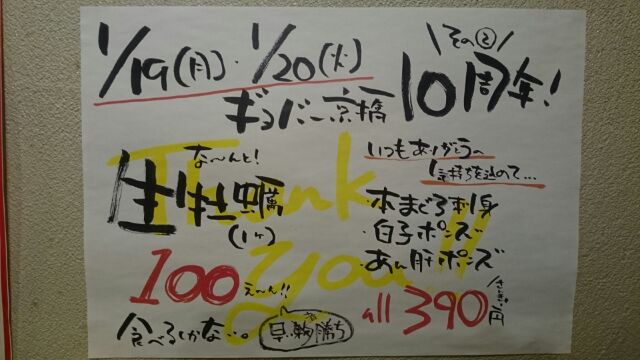 1/19(月)・1/20(火)
\その②/
10周年!
ギョバー京橋
な〜んと!
生牡蠣
(1ヶ)
100え〜ん!!
食べるしかな…。
早い者勝ち
いつもありがとうの
気持ちを込めて…
・本まぐろ刺身
・白子ポンズ
・あん肝ポンズ
all 390円
Thank
you!!